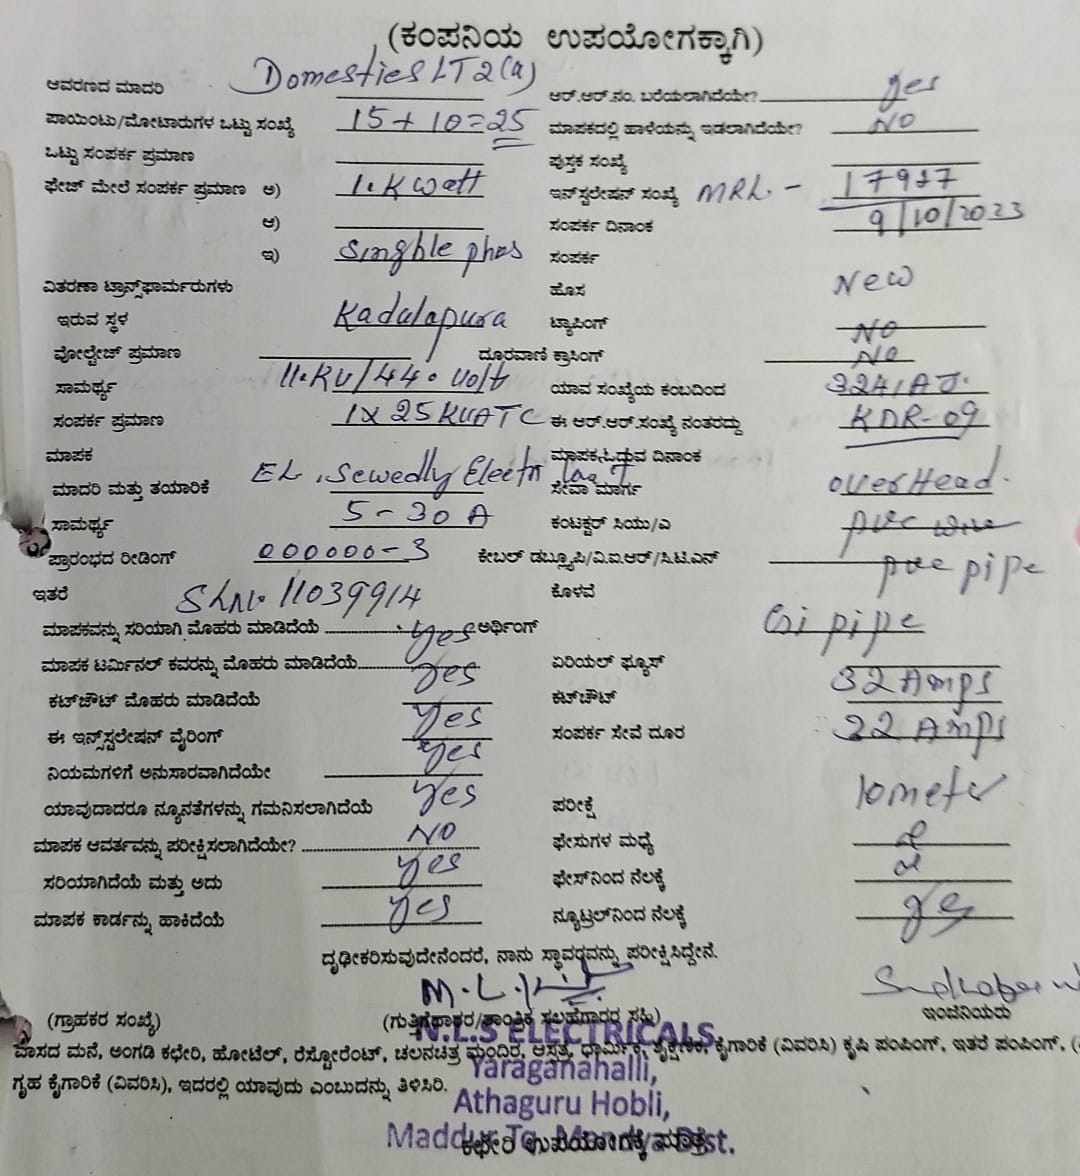 (ಕಂಪನಿಯ ಉಪಯೋಗಕ್ಕಾಗಿ)
ಆವರಣದ ಮಾದರಿ Domesties LT2(a) ಆರ್.ಆರ್.ನಂ. ಬರೆಯಲಾಗಿದೆಯೇ? yes
ಪಾಯಿಂಟು/ಮೋಟಾರುಗಳ ಒಟ್ಟು ಸಂಖ್ಯೆ 15+10=25 ಮಾಪಕದಲ್ಲಿ ಹಾಳೆಯನ್ನು ಇಡಲಾಗಿದೆಯೇ? NO
ಒಟ್ಟು ಸಂಪರ್ಕ ಪ್ರಮಾಣ ಪುಸ್ತಕ ಸಂಖ್ಯೆ
ಫೇಜ್ ಮೇಲೆ ಸಂಪರ್ಕ ಪ್ರಮಾಣ ಅ) 1.K watt ಇನ್‌ಸ್ಟಲೇಷನ್ ಸಂಖ್ಯೆ MRL - 17937
ಆ) ಸಂಪರ್ಕ ದಿನಾಂಕ 9/10/2023
ಇ) Singhle phas ಸಂಪರ್ಕ
ವಿತರಣಾ ಟ್ರಾನ್ಸ್‌ಫಾರ್ಮರುಗಳು ಹೊಸ New
ಇರುವ ಸ್ಥಳ Kadalapura ಟ್ಯಾಪಿಂಗ್ NO
ವೋಲ್ಟೇಜ್ ಪ್ರಮಾಣ ದೂರವಾಣಿ ಕ್ರಾಸಿಂಗ್ NO
ಸಾಮರ್ಥ್ಯ 11.KV/440 volt ಯಾವ ಸಂಖ್ಯೆಯ ಕಂಬದಿಂದ 324/AJ.
ಸಂಪರ್ಕ ಪ್ರಮಾಣ 1x25KVATC ಈ ಆರ್.ಆರ್.ಸಂಖ್ಯೆ ನಂತರದ್ದು KDR-09
ಮಾಪಕ ಮಾಪಕ ಓದುವ ದಿನಾಂಕ
ಮಾದರಿ ಮತ್ತು ತಯಾರಿಕೆ EL, Sewedly Electr ಸೇವಾ ಮಾರ್ಗ overHead.
ಸಾಮರ್ಥ್ಯ 5-30A ಕಂಟಕ್ಟರ್ ಸಿಯು/ಎ pvc wire
ಪ್ರಾರಂಭದ ರೀಡಿಂಗ್ 000000-3 ಕೇಬಲ್ ಡಬ್ಲ್ಯೂಪಿ/ವಿ.ಐ.ಆರ್/ಸಿ.ಟಿ.ಎಸ್ pve pipe
ಇತರೆ SLNo 11039914 ಕೊಳವೆ
ಮಾಪಕವನ್ನು ಸರಿಯಾಗಿ ಮೊಹರು ಮಾಡಿದೆಯೆ yes ಅರ್ಥಿಂಗ್ Gi pipe
ಮಾಪಕ ಟರ್ಮಿನಲ್ ಕವರನ್ನು ಮೊಹರು ಮಾಡಿದೆಯೆ yes ಏರಿಯಲ್ ಫ್ಯೂಸ್ 32 Amps
ಕಟ್‌ಔಟ್ ಮೊಹರು ಮಾಡಿದೆಯೆ yes ಕಟ್‌ಔಟ್ 32 Amps
ಈ ಇನ್ಸ್‌ಸ್ಟಲೇಷನ್ ವೈರಿಂಗ್ yes ಸಂಪರ್ಕ ಸೇವೆ ದೂರ
ನಿಯಮಗಳಿಗೆ ಅನುಸಾರವಾಗಿದೆಯೇ
ಯಾವುದಾದರೂ ನ್ಯೂನತೆಗಳನ್ನು ಗಮನಿಸಲಾಗಿದೆಯೆ yes ಪರೀಕ್ಷೆ 10meter
ಮಾಪಕ ಆವರ್ತವನ್ನು ಪರೀಕ್ಷಿಸಲಾಗಿದೆಯೇ? NO ಫೇಸುಗಳ ಮಧ್ಯೆ
ಸರಿಯಾಗಿದೆಯೆ ಮತ್ತು ಅದು yes ಫೇಸ್‌ನಿಂದ ನೆಲಕ್ಕೆ
ಮಾಪಕ ಕಾರ್ಡನ್ನು ಹಾಕಿದೆಯೆ yes ನ್ಯೂಟ್ರಲ್‌ನಿಂದ ನೆಲಕ್ಕೆ yes
ದೃಢೀಕರಿಸುವುದೇನೆಂದರೆ, ನಾನು ಸ್ಥಾವರವನ್ನು ಪರೀಕ್ಷಿಸಿದ್ದೇನೆ.
(ಗ್ರಾಹಕರ ಸಂಖ್ಯೆ) (ಗುತ್ತಿಗೆದಾರರ/ತಾಂತ್ರಿಕ ಸಲಹೆಗಾರರ ಸಹಿ) ಇಂಜಿನಿಯರು
N.L.S ELECTRICALS.
ವಾಸದ ಮನೆ, ಅಂಗಡಿ ಕಛೇರಿ, ಹೋಟೆಲ್, ರೆಸ್ಟೋರೆಂಟ್, ಚಲನಚಿತ್ರ ಮಂದಿರ, ಆಸ್ಪತ್ರೆ, ಧಾರ್ಮಿಕ, ಶೈಕ್ಷಣಿಕ, ಕೈಗಾರಿಕೆ (ವಿವರಿಸಿ) ಕೃಷಿ ಪಂಪಿಂಗ್, ಇತರೆ ಪಂಪಿಂಗ್, (
Yaraganahalli,
ಗೃಹ ಕೈಗಾರಿಕೆ (ವಿವರಿಸಿ), ಇದರಲ್ಲಿ ಯಾವುದು ಎಂಬುದನ್ನು ತಿಳಿಸಿರಿ.
Athaguru Hobli,
Maddur Tq, Mandya Dist.
ಕಛೇರಿ ಉಪಯೋಗಕ್ಕೆ ಮಾತ್ರ